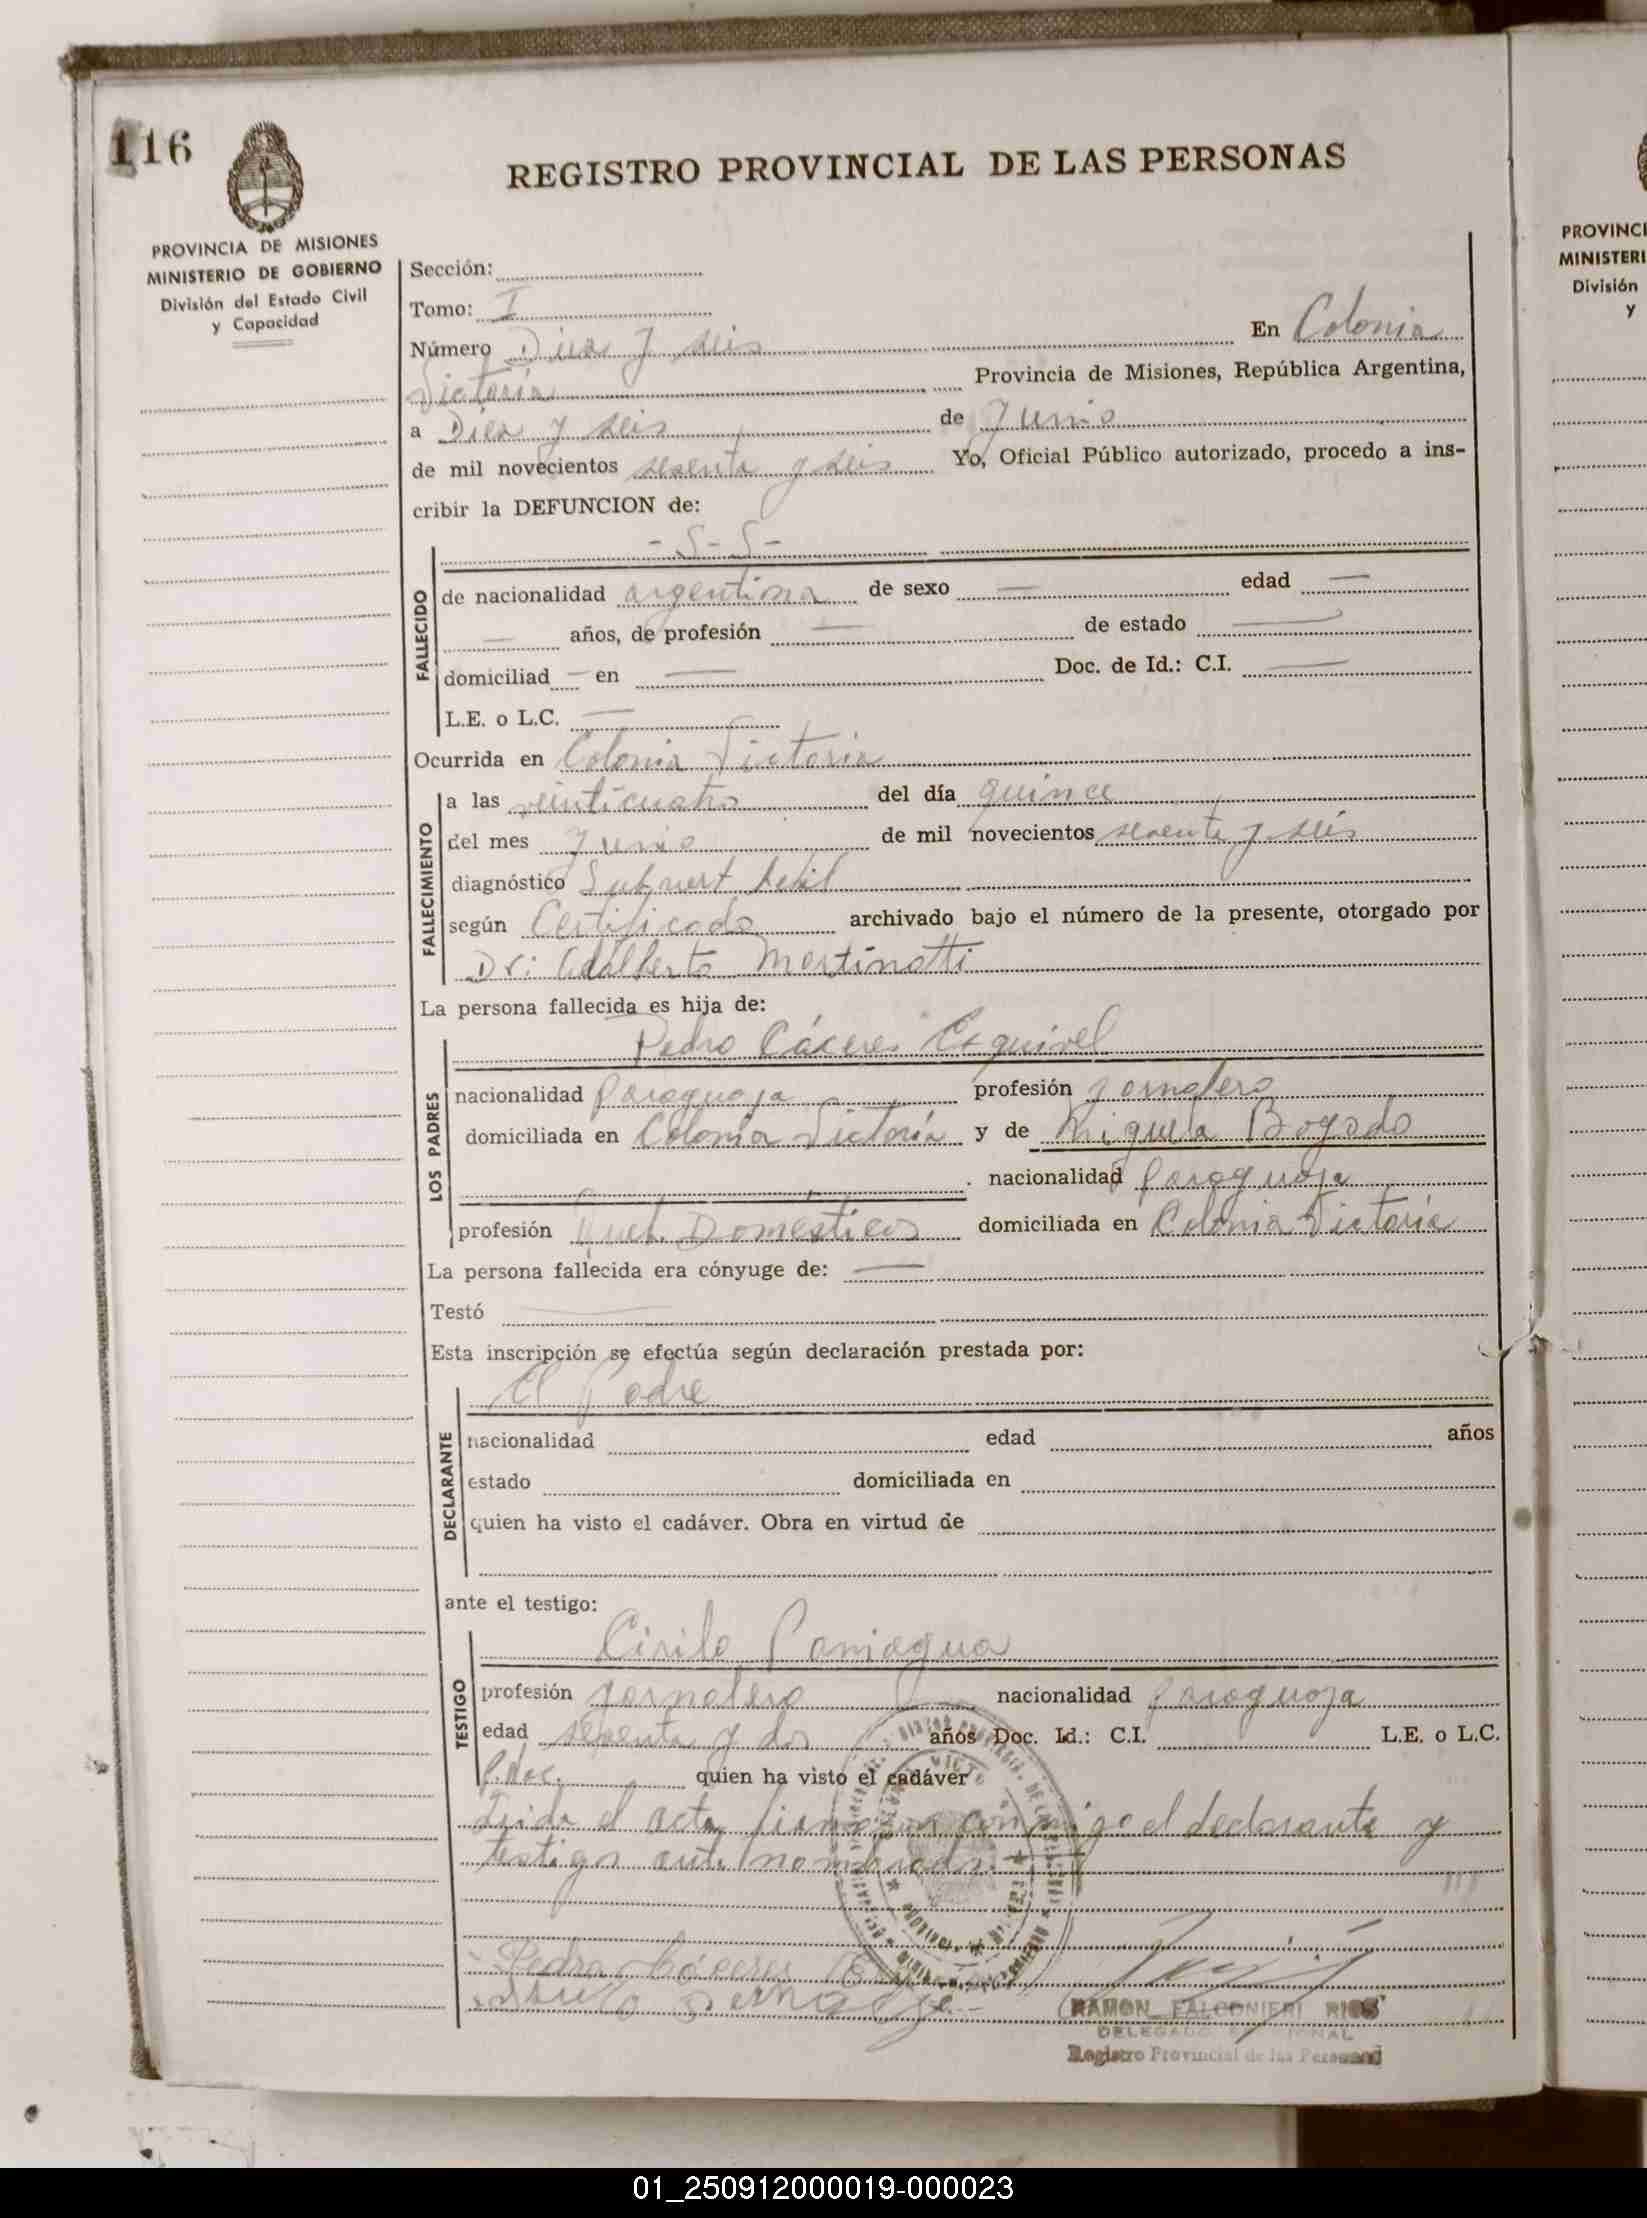 116
REGISTRO PROVINCIAL DE LAS PERSONAS
PROVINCIA DE MISIONES
MINISTERIO DE GOBIERNO
División del Estado Civil
y Capacidad
Sección:
Tomo: I
Número Diez y seis En Colonia
Victoria Provincia de Misiones, República Argentina,
a Diez y seis de Junio
de mil novecientos sesenta y seis Yo, Oficial Público autorizado, procedo a ins-
cribir la DEFUNCION de:
- S - S -
FALLECIDO
de nacionalidad argentina de sexo — edad —
— años, de profesión — de estado —
domiciliad — en — Doc. de Id.: C.I. —
L.E. o L.C. —
Ocurrida en Colonia Victoria
FALLECIMIENTO
a las veinticuatro del día quince
del mes Junio de mil novecientos sesenta y seis
diagnóstico
según Certificado archivado bajo el número de la presente, otorgado por
Dr: Adalberto Martinotti
La persona fallecida es hija de:
Pedro Cáceres Esquivel
LOS PADRES
nacionalidad Paraguaya profesión Jornalero
domiciliada en Colonia Victoria y de Miguela Bogado
nacionalidad Paraguaya
profesión Queh. Domésticos domiciliada en Colonia Victoria
La persona fallecida era cónyuge de: —
Testó —
Esta inscripción se efectúa según declaración prestada por:
El Padre
DECLARANTE
nacionalidad edad años
estado domiciliada en
quien ha visto el cadáver. Obra en virtud de
ante el testigo:
Cirilo Paniagua
TESTIGO
profesión Jornalero nacionalidad Paraguaya
edad sesenta y dos años Doc. Id.: C.I. L.E. o L.C.
quien ha visto el cadáver
Leida el acta firman conmigo el declarante y
testigo ante nombrado.
Pedro Cáceres
RAMON FALCONIERI RIOS
DELEGADO
Registro Provincial de las Personas
PROVINCI
MINISTERI
División
y
01_250912000019-000023